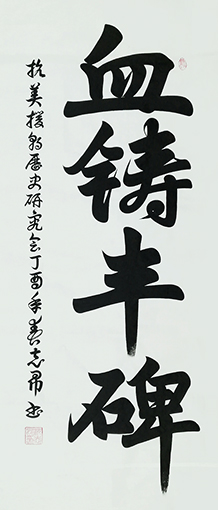 血铸丰碑
抗美援朝历史研究会丁酉年春志昂书